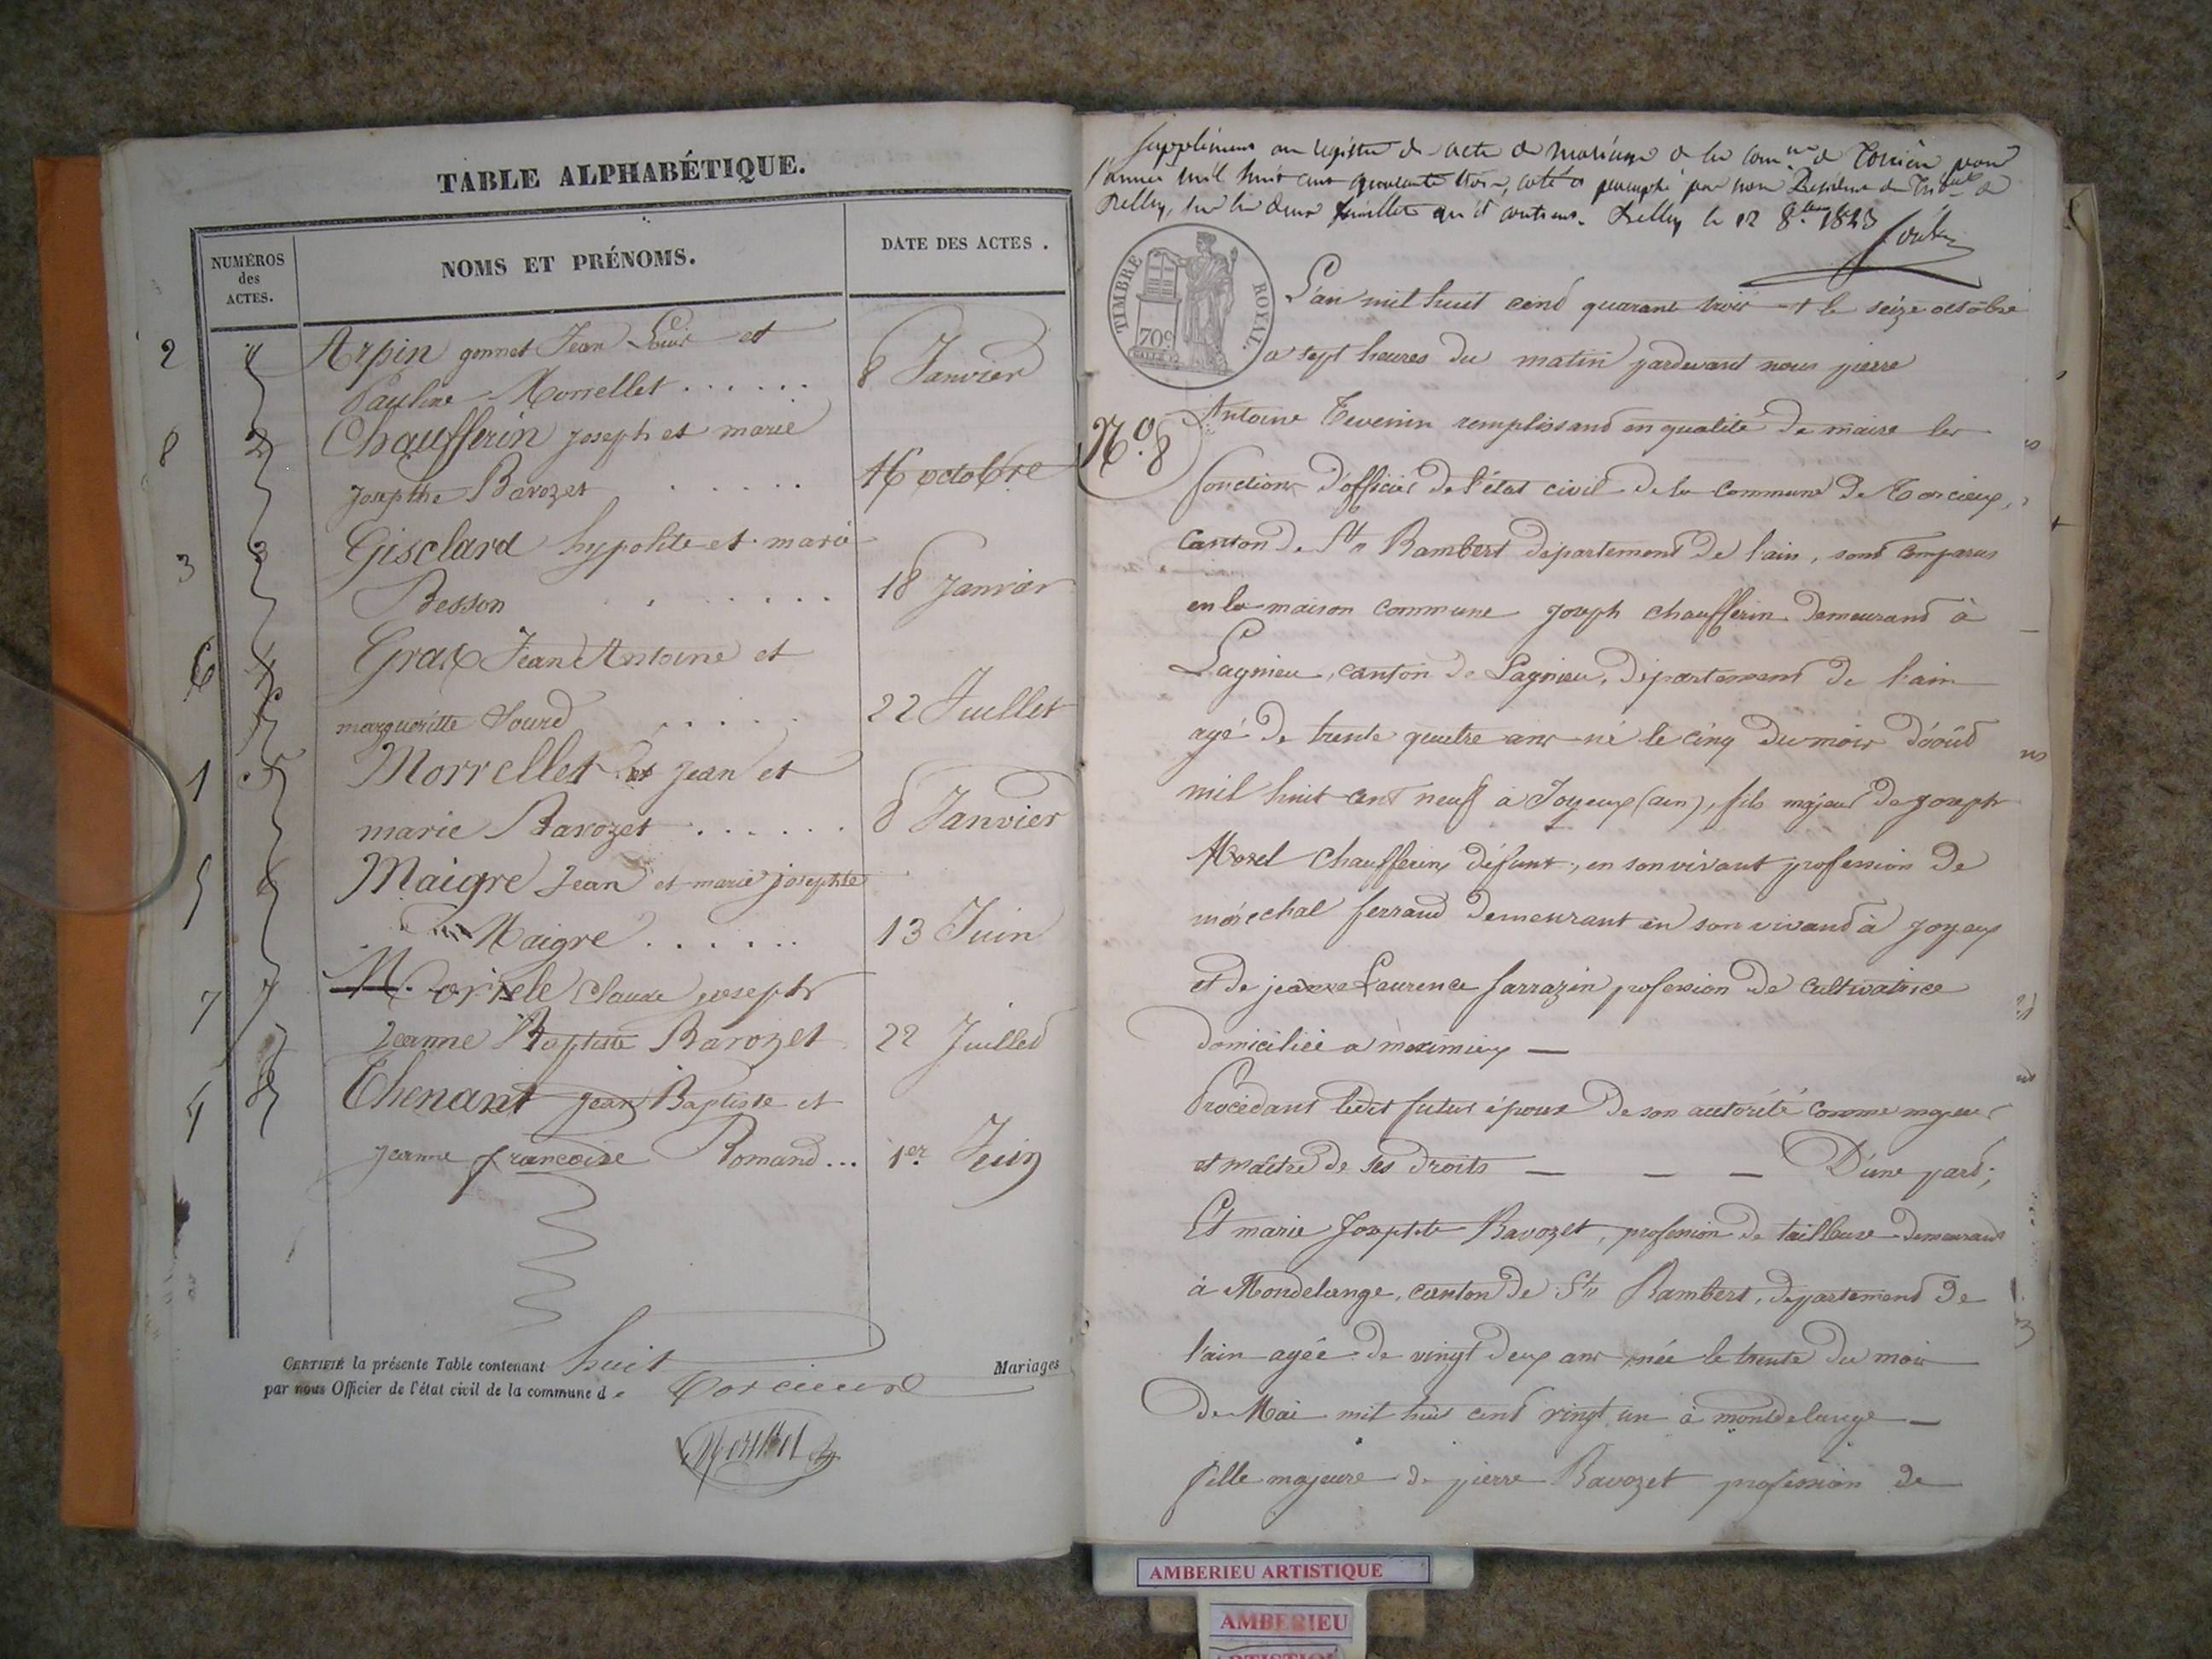 TABLE ALPHABÉTIQUE.
NUMÉROS
des
ACTES.
NOMS ET PRÉNOMS.
DATE DES ACTES.
2 1 Arpin gonnet Jean Louis et
Pauline Morrellet . . . . . . 8 Janvier
8 2 Chaufferin Joseph et marie
Josepthe Bavozet . . . . . 16 octobre
3 3 Gisclard hypolite et marie
Besson . . . . . . 18 Janvier
6 4 Grax Jean Antoine et
margueritte Sourd . . . . . 22 Juillet
1 5 Morrellet Jean et
marie Bavozet . . . . . . 8 Janvier
5 6 Maigre Jean et marie josephte
Maigre . . . . . . 13 Juin
7 7 Claude joseph
Jeanne Baptiste Barozet 22 Juilled
4 8 Thenant Jean Baptiste et
Jeanne francoise Romand... 1er Juin
CERTIFIÉ la présente Table contenant huit Mariages
par nous Officier de l'état civil de la commune de Torcieux
supplément au registre de acte de mariage de la comne de Torcieu pour
l'année mil huit cent quarante trois, coté et paraphé par nous Président du Tribal de
Belley, sur les deux feuillets qu'il contient. Belley le 12 8bre 1843
TIMBRE ROYAL.
70c
L'an mil huit cend quarant trois et le seize octobre
a sept heures du matin pardevant nous pierre
No. 8
Antoine Tevenin remplissand en qualité de maire les
fonctions d'officier de l'état civil de la commune de Torcieux,
canton de St Rambert département de l'ain, sont comparus
en la maison commune joseph chaufferin demeurand à
Lagnieu, canton de Lagnieu, département de l'ain
agé de trente quatre ans né le cinq du mois d'août
mil huit cent neuf à Joyeux (ain), fils majeur de joseph
Morel Chaufferin, défunt, en son vivant profession de
maréchal ferrand demeurant en son vivand à joyeux
et de jeanne Laurence sarrazin profession de cultivatrice
domiciliée a meximieux —
Procédant ledit futur époux de son autorité comme majeur
et maître de ses droits — — — D'une pard;
Et marie Josephte Bavozet, profession de tailleuse demeurand
à Mondelange, canton de St Rambert, département de
l'ain agée de vingt deux ans née le trente du mois
de Mai mil huit cend vingt un à montdelange —
fille majeure de pierre Bavozet profession de
AMBERIEU ARTISTIQUE
AMBERIEU
ARTISTIQUE